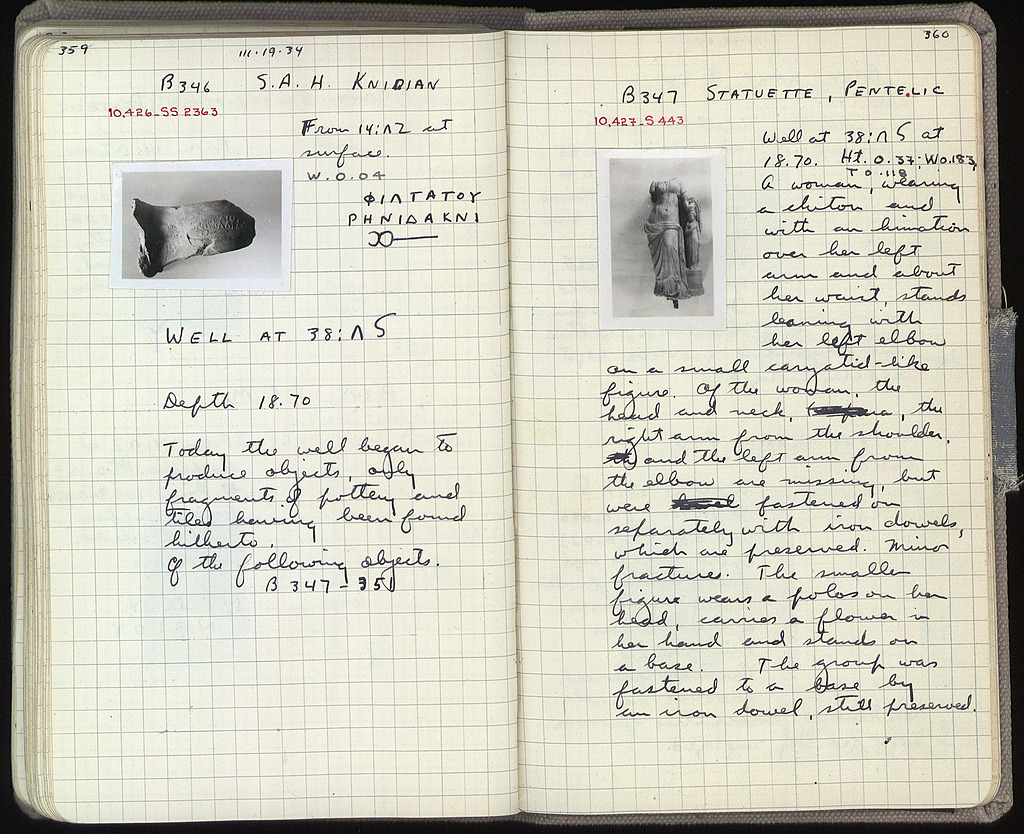 359
III·19·34
B346 S.A.H. KNIDIAN
10,426-SS 2363
From 14:Λ2 at
surface.
W. 0.04
ΦΙΛΤΑΤΟΥ
ΡΗΝΙΔΑΚΝΙ
WELL AT 38:Λ5
Depth 18.70
Today the well began to
produce objects, only
fragments of pottery and
tiles having been found
hitherto.
Of the following objects.
B 347-351
360
B347 STATUETTE, PENTELIC
10,427-S 443
Well at 38:Λ5 at
18.70. Ht. 0.37; W 0.183,
T 0.118
A woman, wearing
a chiton and
with an himation
over her left
arm and about
her waist, stands
leaning with
her left elbow
on a small caryatid-like
figure. Of the woman, the
head and neck, the
right arm from the shoulder,
and the left arm from
the elbow are missing, but
were fastened on
separately with iron dowels,
which are preserved. Minor
fractures. The smaller
figure wears a polos on her
head, carries a flower in
her hand and stands on
a base. The group was
fastened to a base by
an iron dowel, still preserved.